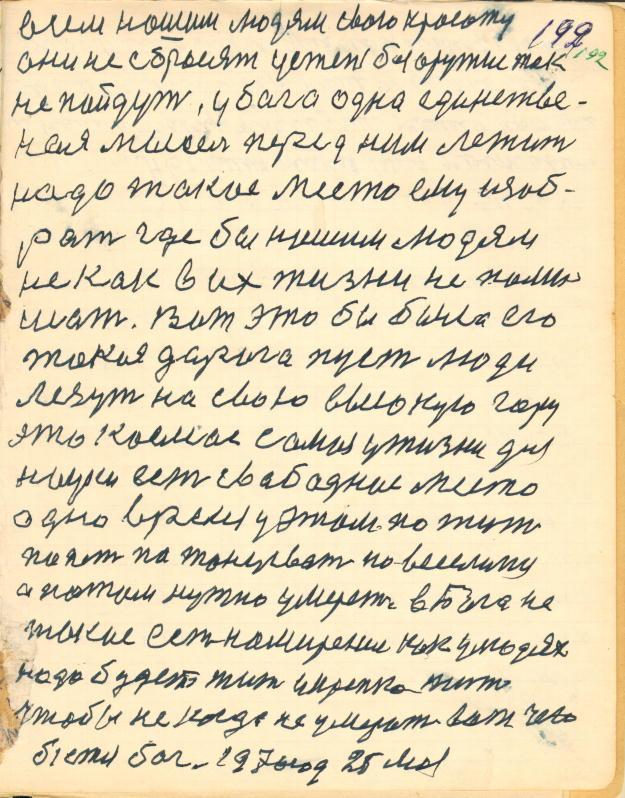 192
192
всем нашим людям свою красоту
они не сбросят устен бы оружие так
не пойдут, у бога одна единстве-
ная мысел перед ним лежит
надо такое место ему изоб-
рат где бы нашим людям
не как в их жизни не поми
шат. вот это бы была его
такая дарога пуст люди
лезут на свою высокую гору
это космос самая у жизни для
науки ест свабадное место
одно время у этом по жит
поят по танцеват по веселит
а потом нужно умереть в бога не
такие ест намирение как у людях
надо будет жит и крепко жит
чтобы не когда не умерат вот чего
бог. 197 год 25 мая